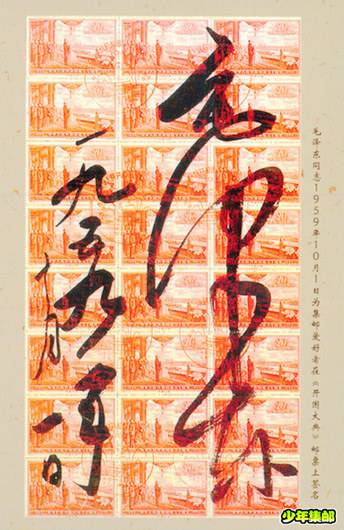 毛泽东同志1959年10月1日为集邮爱好者在《开国大典》邮票上签名
毛泽东
一九五九年
十月
一日
少年集邮